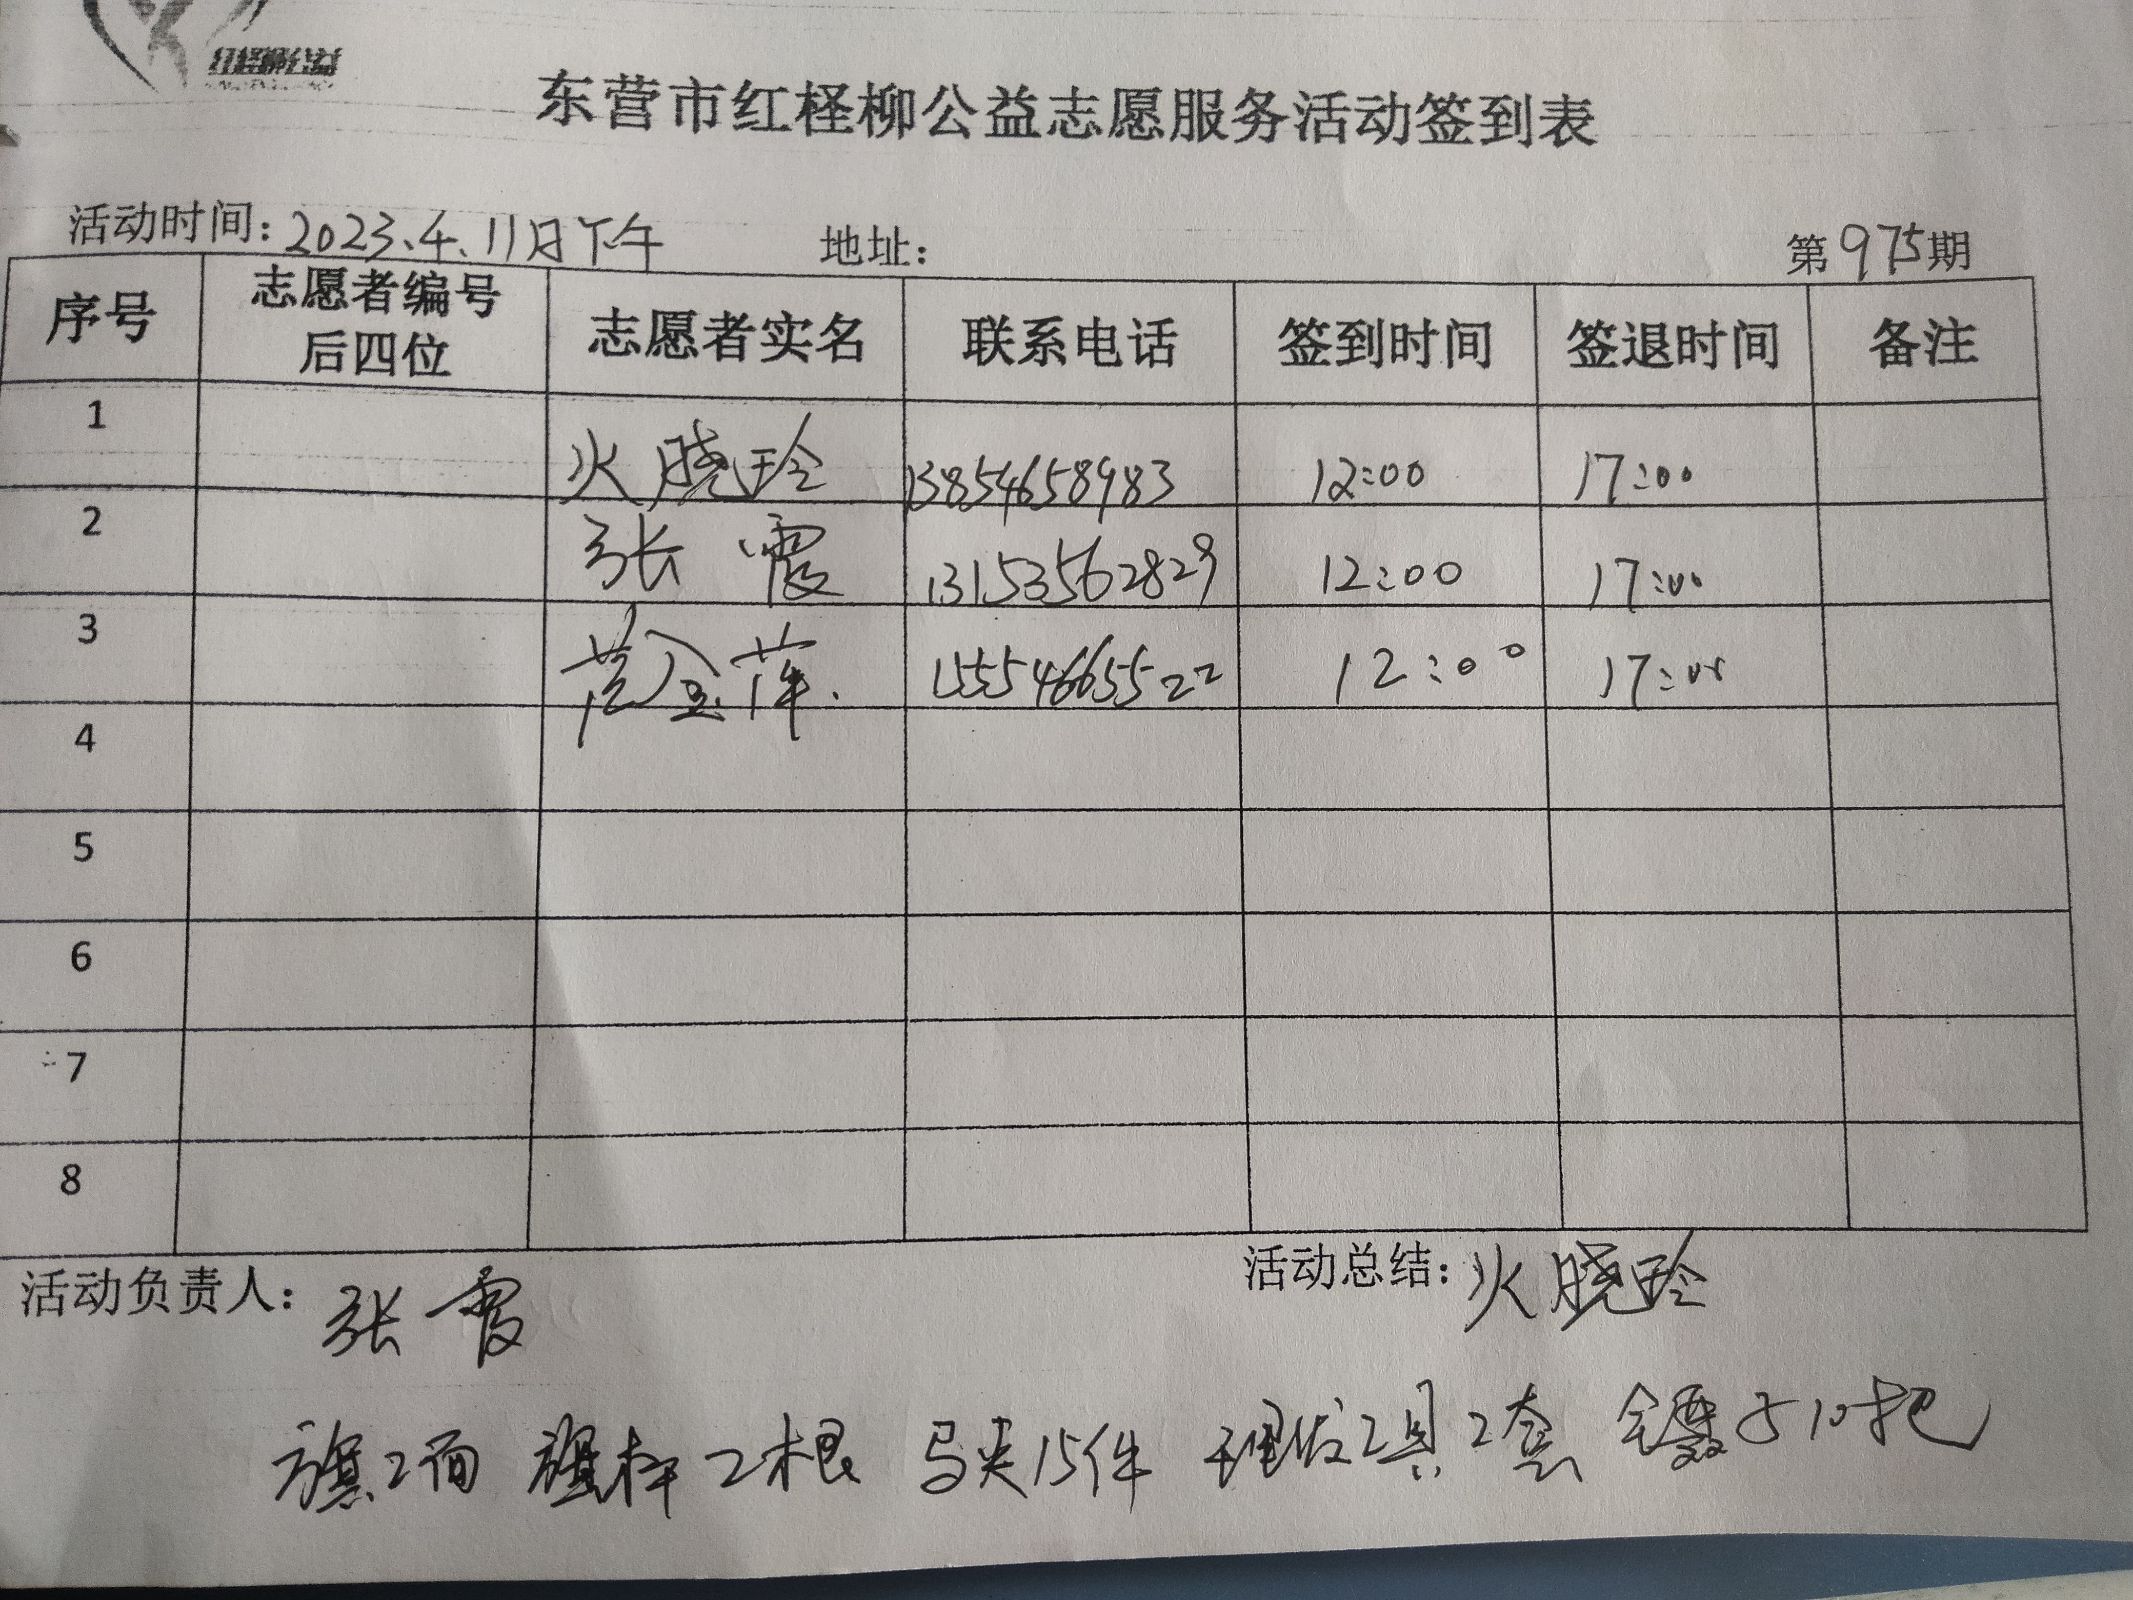 红柽柳公益
东营市红柽柳公益志愿服务活动签到表
活动时间：2023.4.11日下午 地址： 第975期
序号 志愿者编号后四位 志愿者实名 联系电话 签到时间 签退时间 备注
1 火晓玲 13854658983 12:00 17:00
2 张霞 13153562829 12:00 17:00
3 范金萍 15554665522 12:00 17:00
4
5
6
7
8
活动负责人：张霞 活动总结：火晓玲
旗2面 旗杆2根 马夹15件 理发工具2套 镊子10把